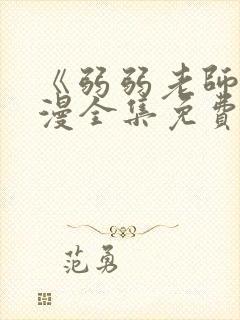 《弱弱老師
漫全集免費
范勇